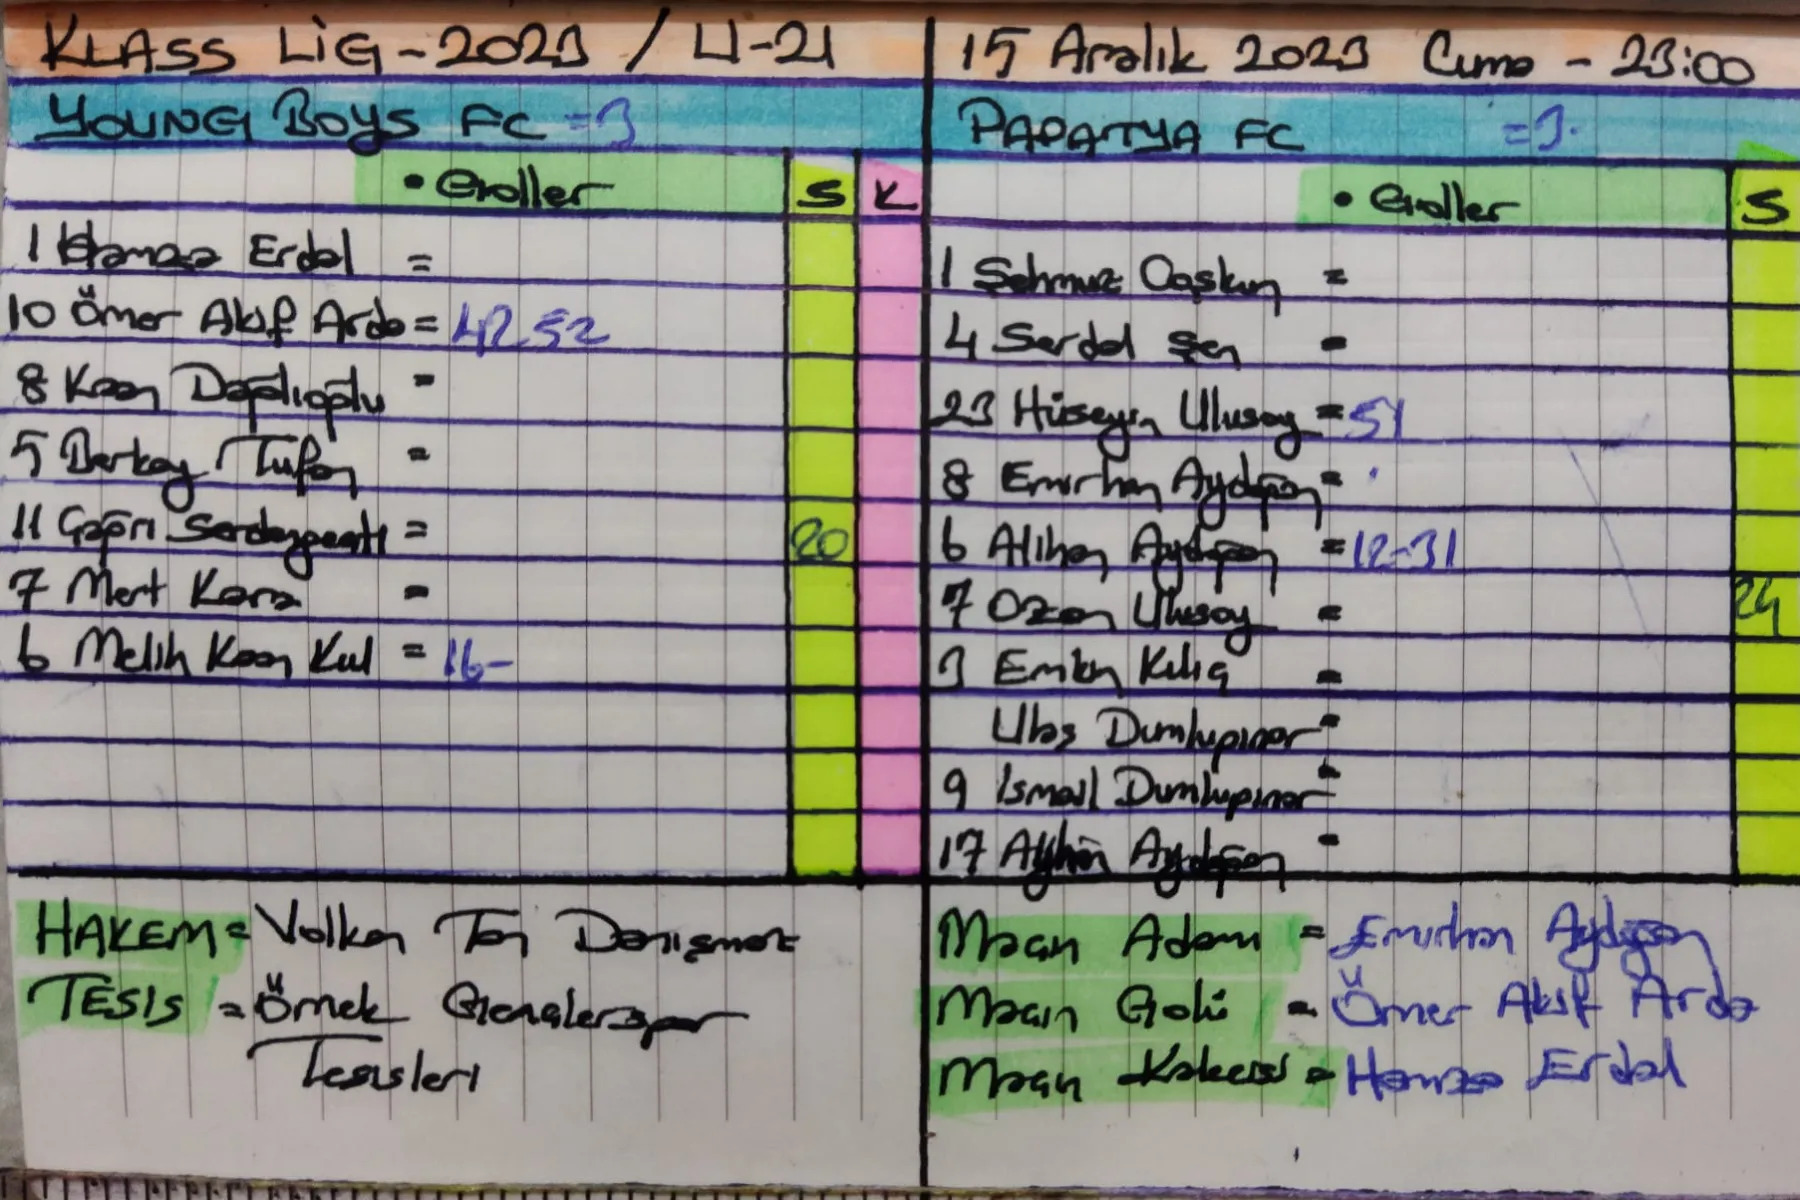 KLASS LİG - 2023 / U-21
YOUNG BOYS FC = 3
• Goller S K
1 Hamza Erdal =
10 Ömer Akif Arda = 42 52
8 Kaan Dağlıoğlu =
5 Berkay Tufan =
11 Çağrı = 20
7 Mert Kara =
6 Melih Kaan Kul = 16-
HAKEM = Volkan Tan Danışmaz
TESIS = Örnek Gençlerspor
Tesisleri
15 Aralık 2023 Cuma - 23:00
PAPATYA FC = 3
• Goller S
1 Şehmuz Coşkun =
4 Serdal Şen =
23 Hüseyin Ulusoy = 51
8 Emirhan Aydoğan =
6 Alihan Aydoğan = 12-31
7 Ozan Ulusoy = 24
3 Kılıç =
Ulaş Dumlupınar =
9 Ismail Dumlupınar =
17 Ayhan Aydoğan =
Maçın Adamı = Emirhan Aydoğan
Maçın Golü = Ömer Akif Arda
Maçın Kalecisi = Hamza Erdal